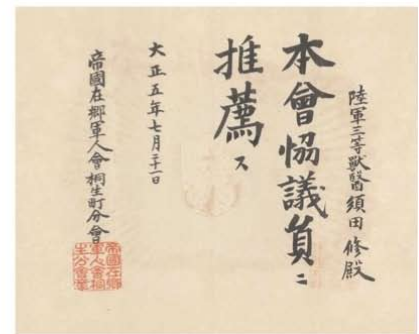 陸軍三等獸醫須田修殿
本會協議員ニ
推薦ス
大正五年七月二十一日
帝國在鄉軍人會桐生町分會
帝國在鄉
軍人會桐
生分會章